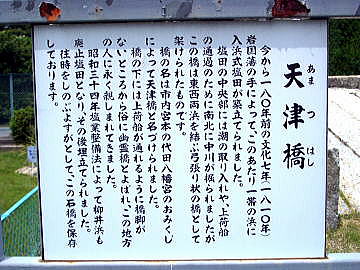 天津橋
あまつはし
今から一八〇年前の文化七年(一八一〇年)
岩国藩の手によって、このあたり一帯の浜に
入浜式塩田が築立てられました。
塩田の中央部には潮の取り入れや、上荷船
の通過のために南北に中川が掘られましたが
この橋は東西両浜を結ぶ弓張り状の橋として
架けられたものです。
橋の名は市内宮本の代田八幡宮のおみくじ
によって天津橋と名づけられました。
橋の下には上荷船が通れるように橋脚が
ないところから俗に幽霊橋とよばれ、この地方
の人に永く親しまれてきました。
昭和三十四年塩業整備法によって柳井浜も
廃止塩田となり、その後埋立てられました。
往時をしのぶよすがとして、この石橋を保存
しております。